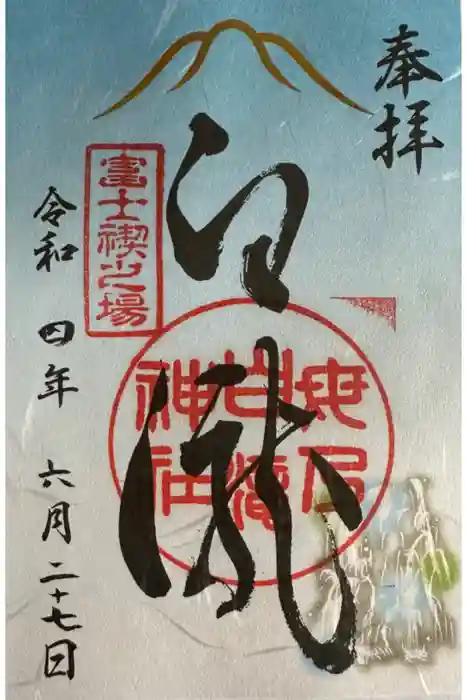 奉拝
白瀧
富士禊之場
白滝
神社
令和四年六月二十七日